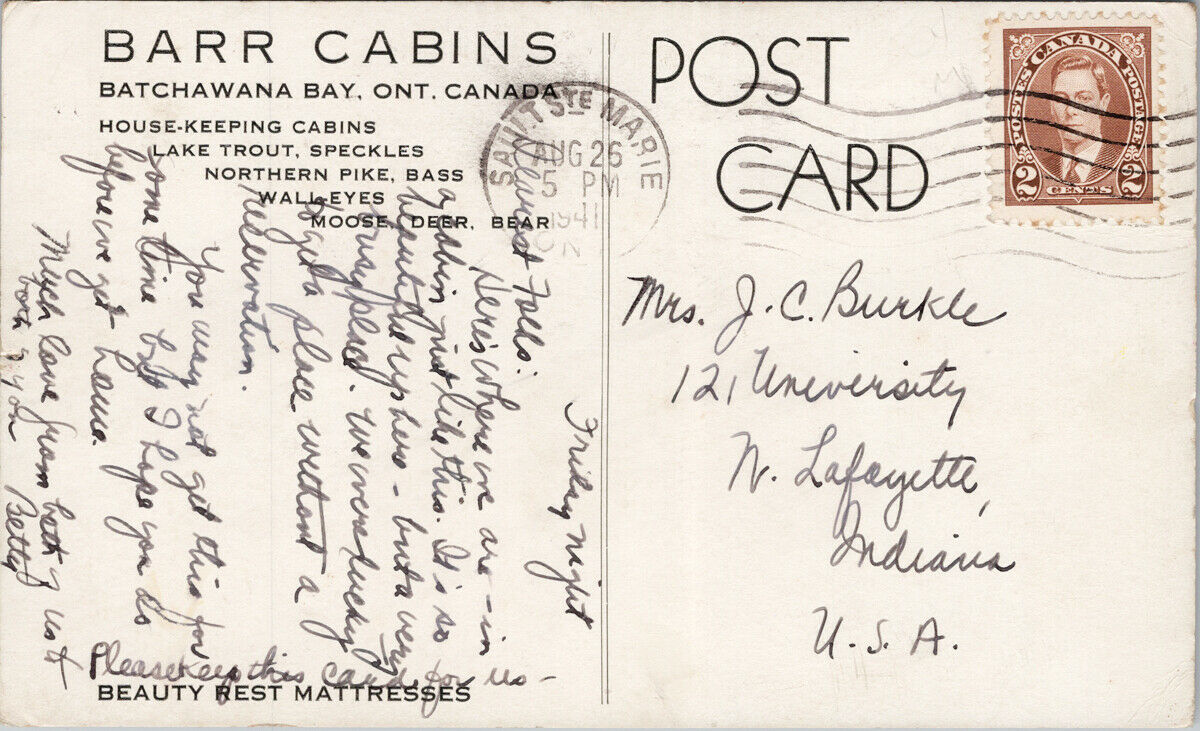 BARR CABINS
BATCHAWANA BAY, ONT. CANADA
HOUSE-KEEPING CABINS
LAKE TROUT, SPECKLES
NORTHERN PIKE, BASS
WALL-EYES
MOOSE, DEER, BEAR
POST
CARD
SAULT STE MARIE
AUG 26
5 PM
1941
ON
POSTES CANADA POSTAGE
2 CENTS 2
Friday night
Folks:
Here's where we are - in
a cabin just like this. It is so
beautiful up here - but a very
busy place. We were lucky
to get a place without a
reservation.
You may not get this for
some time but I hope you do
before we get home.
Much love from both of us to
both of you
Betty
Please keep this card for us -
BEAUTY REST MATTRESSES
Mrs. J. C. Burkle
121 University
W. Lafayette,
Indiana
U. S. A.